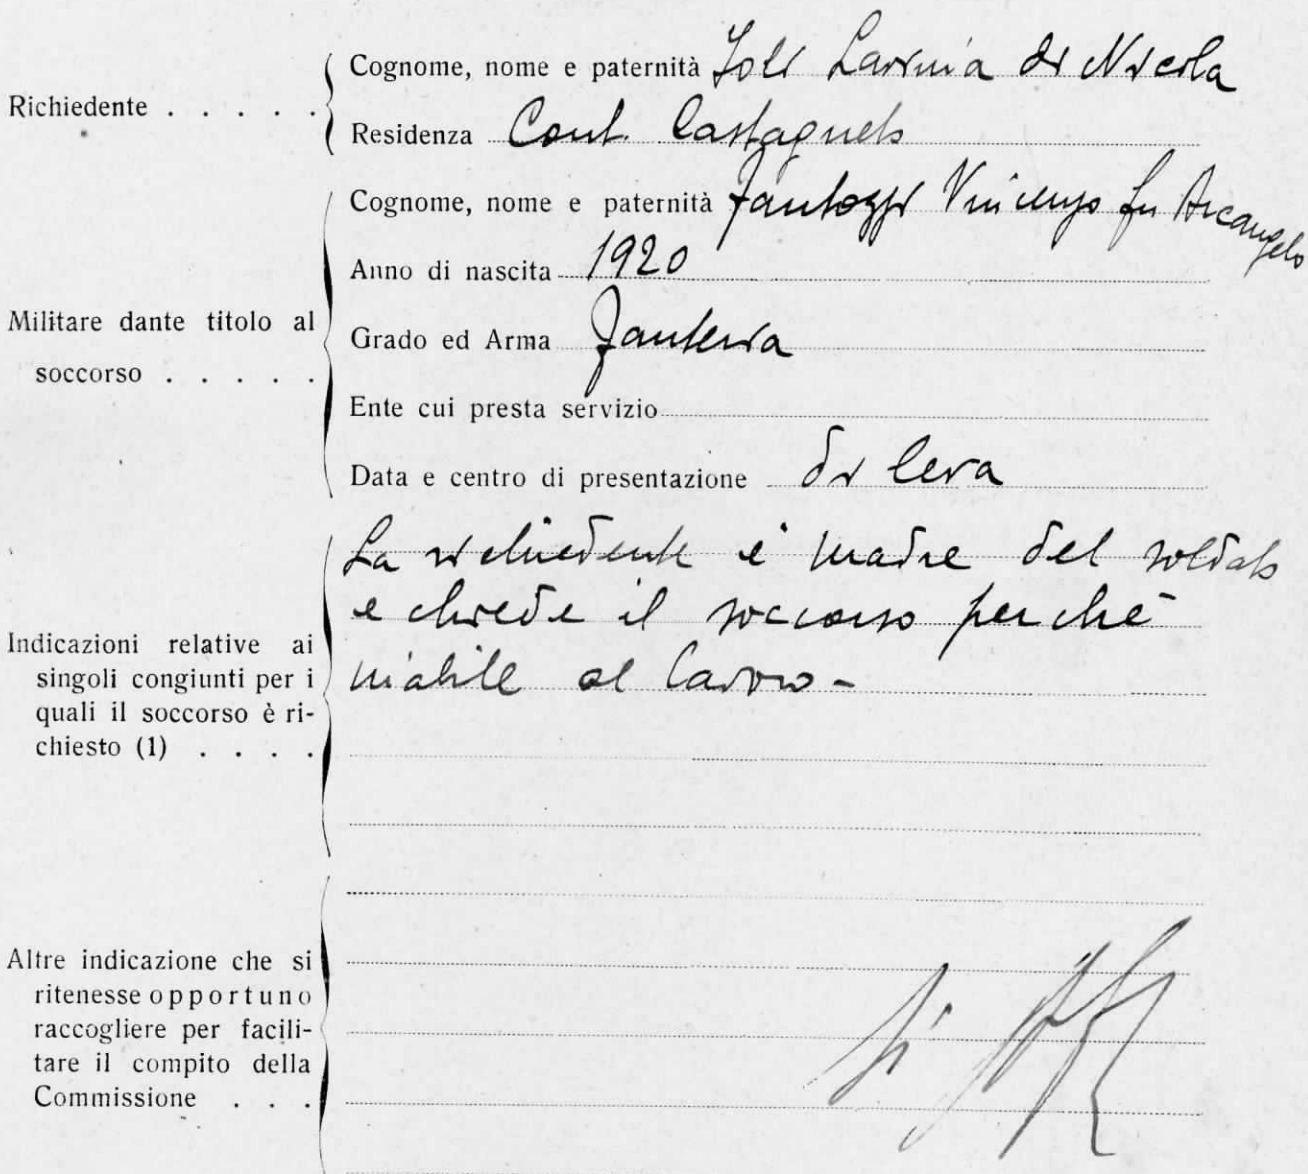 Richiedente . . . . .
Cognome, nome e paternità Lavinia di Nicola
Residenza Cont. Castagneto
Militare dante titolo al
soccorso . . . . .
Cognome, nome e paternità Fantozzi Vincenzo fu Arcangelo
Anno di nascita 1920
Grado ed Arma Fanteria
Ente cui presta servizio
Data e centro di presentazione di leva
Indicazioni relative ai
singoli congiunti per i
quali il soccorso è ri-
chiesto (1) . . . .
La richiedente è madre del soldato
e chiede il soccorso perchè
inabile al lavoro -
Altre indicazione che si
ritenesse opportuno
raccogliere per facili-
tare il compito della
Commissione . . .
si